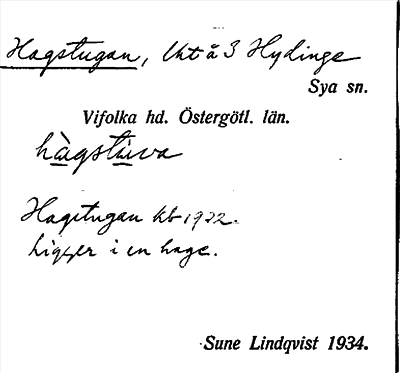 Hagstugan, Lht å 3 Hydinge
Sya sn.
Vifolka hd. Östergötl. län.
hàgstùva
Hagstugan kb 1922.
Ligger i en hage.
Sune Lindqvist 1934.